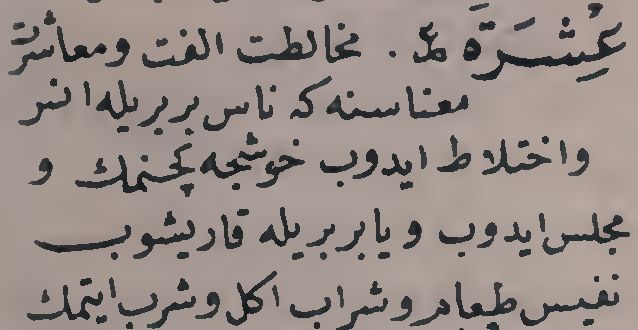 عِشْرَةَ ع . مخالطت الفت ومعاشرت
معناسنه كه ناس بربريله انس
واختلاط ايدوب خوشجه كچنمك و
مجلس ايدوب ويا بربريله قاريشوب
نفيس طعام وشراب اكل وشرب ايتمك